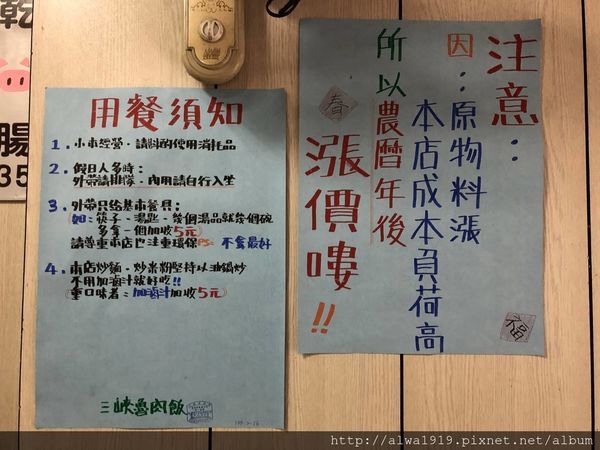 乾
腸
35
用餐須知
1. 小本經營，請斟酌使用消耗品
2. 假日人多時：
外帶請排隊，內用請自行入坐
3. 外帶只給基本餐具：
(如：筷子、湯匙、幾個湯品就幾個碗
多拿一個加收5元)
請尊重本店也注重環保PS: 不拿最好
4. 本店炒麵、炒米粉堅持以油鍋炒
不用加滷汁就好吃!!
(重口味者：加滷汁加收5元)
三峽魯肉飯
注意：
因：原物料漲
本店成本負荷高
所以農曆年後
漲價嘍!!
春
福
http://alwa1919.pixnet.net/album